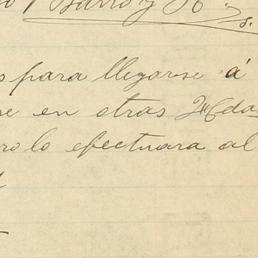 Barro y H
s para llegarse á
se en otras
ro lo efectuara al